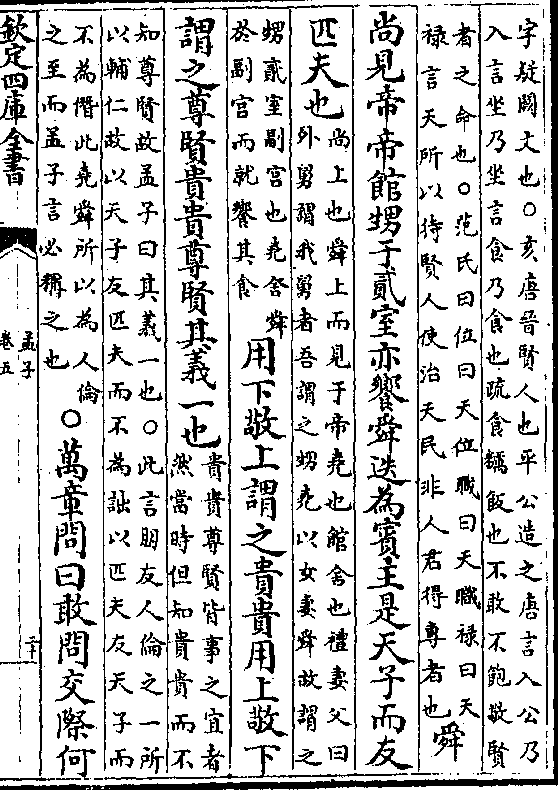 字疑闕文也○亥唐晉賢人也平公造之唐言入公乃
入言坐乃坐言食乃食也疏食糲飯也不敢不飽敬賢
者之命也○范氏曰位曰天位職曰天職祿曰天
祿言天所以待賢人使治天民非人君得尊者也
舜
尚見帝帝館甥于貳室亦饗舜迭為賓主是天子而友
匹夫也
尚上也舜上而見于帝堯也館舍也禮妻父曰
外舅謂我舅者吾謂之甥堯以女妻舜故謂之
甥貳室副宮也堯舍舜
於副宮而就饗其食
用下敬上謂之貴貴用上敬下
謂之尊賢貴貴尊賢其義一也
貴貴尊賢皆事之宜者
然當時但知貴貴而不
知尊賢故孟子曰其義一也○此言朋友人倫之一所
以輔仁故以天子友匹夫而不為詘以匹夫友天子而
不為僭此堯舜所以為人倫
之至而孟子言必稱之也
○萬章問曰敢問交際何
欽定四庫全書
孟子
卷五
二十